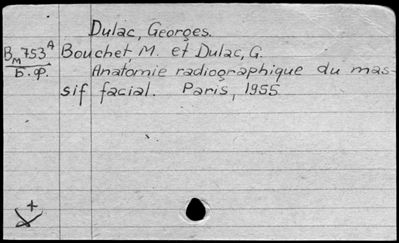 Dulac, Georges.
Bм753ᴬ Bouchet, M. et Dulac, G.
Б.ф. Anatomie radiographique du mas-
sif facial. Paris, 1955
+